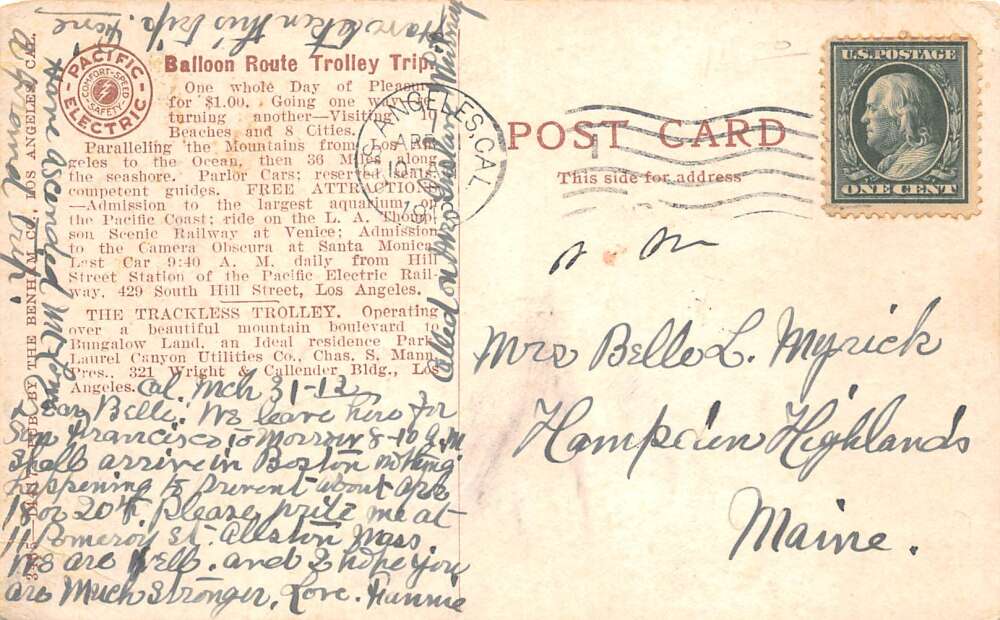 Have taken this trip. Fone
PACIFIC ELECTRIC
COMFORT-SPEED
SAFETY
Balloon Route Trolley Trip.
One whole Day of Pleasure
for $1.00. Going one way
turning another—Visiting 10
Beaches and 8 Cities.
Paralleling the Mountains from Los An
geles to the Ocean, then 36 Miles along
the seashore. Parlor Cars; reserved seats,
competent guides. FREE ATTRACTIONS
—Admission to the largest aquarium on
the Pacific Coast; ride on the L. A. Thomp
son Scenic Railway at Venice; Admission
to the Camera Obscura at Santa Monica.
Last Car 9:40 A. M. daily from Hill
Street Station of the Pacific Electric Rail-
way, 429 South Hill Street, Los Angeles.
THE TRACKLESS TROLLEY. Operating
over a beautiful mountain boulevard to
Bungalow Land, an Ideal residence Park
Laurel Canyon Utilities Co., Chas. S. Mann
Pres., 321 Wright & Callender Bldg., Los
Angeles.
Cal. Mch 31-12
Dear Belle: We leave here for
San Francisco to morrow 8-10 A.M
Shall arrive in Boston nothing
happening to prevent about Apr
18 or 20th. Please write me at
11 Pomeroy St. Allston Mass
We are well. and I hope you
are much stronger, Love. Fannie
Have ascended Mt.
a grand trip.
PUB. BY THE BENHAM CO., LOS ANGELES, CAL.
Called on
LOS ANGELES, CAL.
APR
10
POST CARD
This side for address
U.S. POSTAGE
ONE CENT
Mrs Belle L. Myrick
Hampden Highlands
Maine.